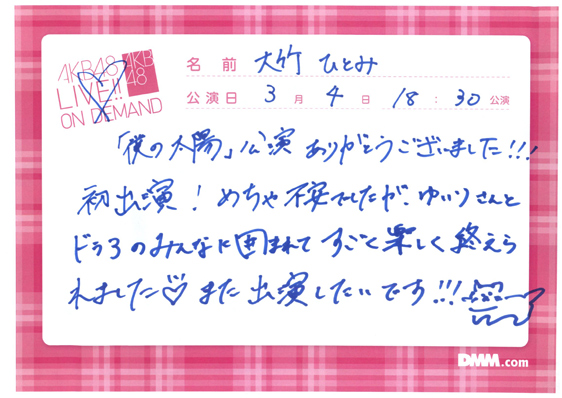 AKB48
LIVE!!
ON DEMAND
AKB
48
名前 大竹 ひとみ
公演日 3月4日 18:30公演
「僕の太陽」公演 ありがとうございました!!!
初出演！めちゃ不安でしたが、ゆいりさんと
ドラ3のみんなに囲まれて すごく楽しく終えら
れました♡ また出演したいです!!!
DMM.com